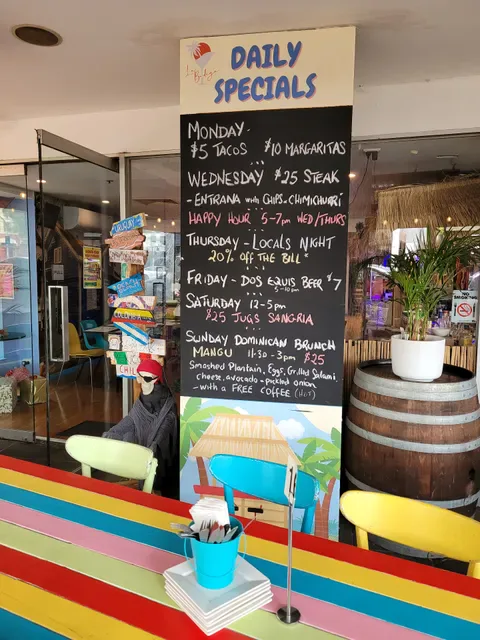 DAILY
SPECIALS
MONDAY
$5 TACOS $10 MARGARITAS
WEDNESDAY $25 STEAK
- ENTRANA WITH CHIPS & CHIMICHURRI
HAPPY HOUR 5-7pm WED/THURS
THURSDAY - LOCALS NIGHT
20% OFF THE BILL*
FRIDAY - DOS EQUIS BEER $7
5-10pm
SATURDAY 12-5pm
$25 JUGS SANGRIA
SUNDAY DOMINICAN BRUNCH
MANGU 11:30-3pm $25
Smashed Plantain, Eggs, Grilled Salami,
cheese, avocado & pickled onion
- with a FREE COFFEE (HOT)
URUGUAY
COLOMBIA
CHILE